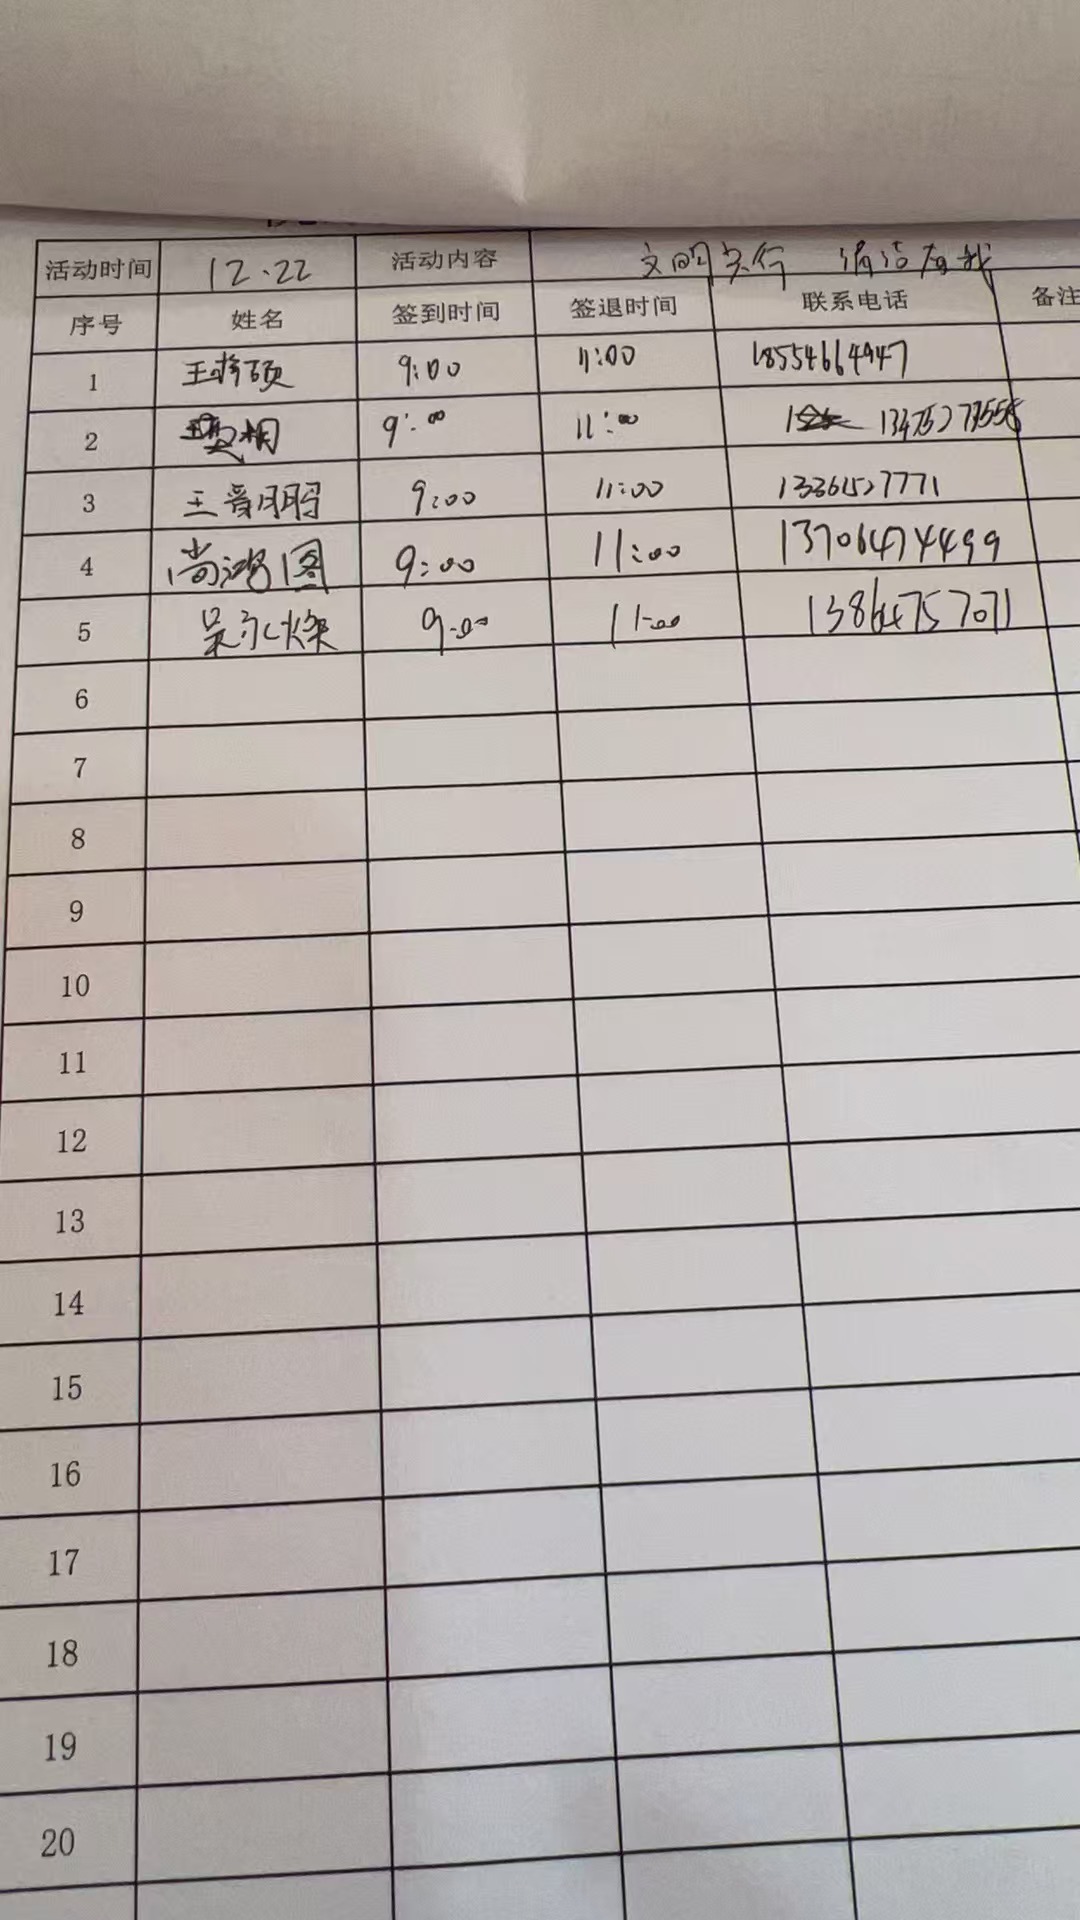 活动时间 12.22 活动内容 文明实行 清洁有我
序号 姓名 签到时间 签退时间 联系电话 备注
1 9:00 11:00 18554664947
2 9:00 11:00
3 王晋鹏 9:00 11:00 13361527771
4 尚鸿图 9:00 11:00 13706474499
5 吴永燦 9:00 11:00 13864757071
6
7
8
9
10
11
12
13
14
15
16
17
18
19
20